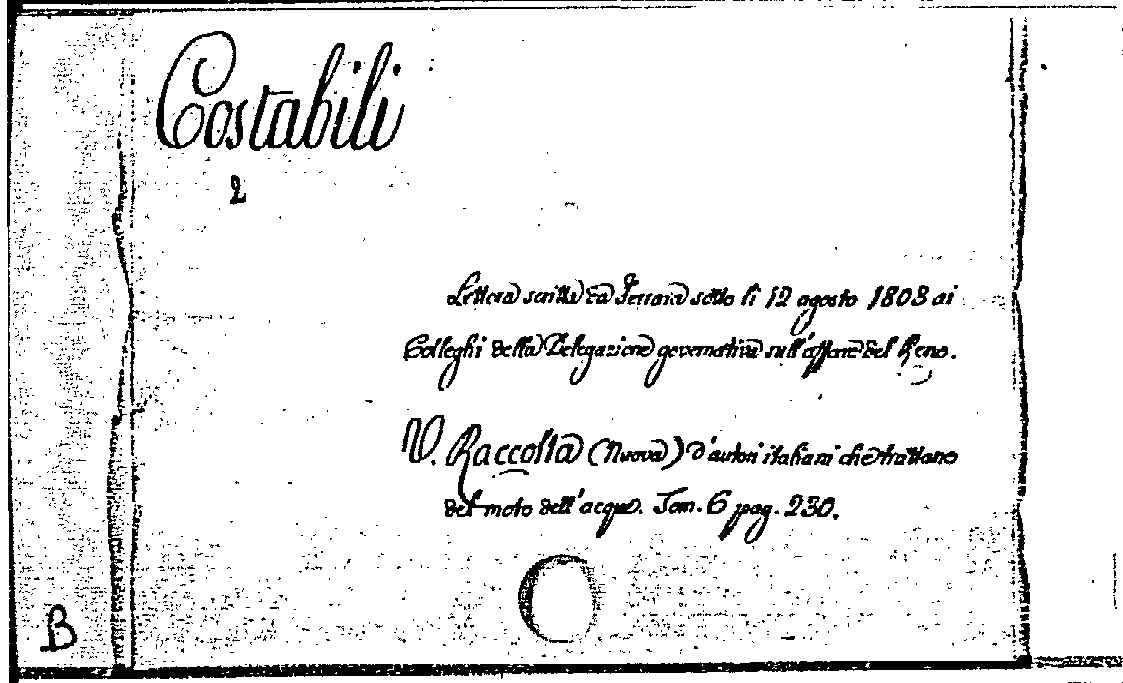 Costabili
2
Lettera scritta da Ferrara sotto li 12 agosto 1803 ai
Colleghi della Delegazione governativa sull'affare del Reno.
V. Raccolta (Nuova) d'autori italiani che trattano
del moto dell'acque. Tom. 6 pag. 230.
B